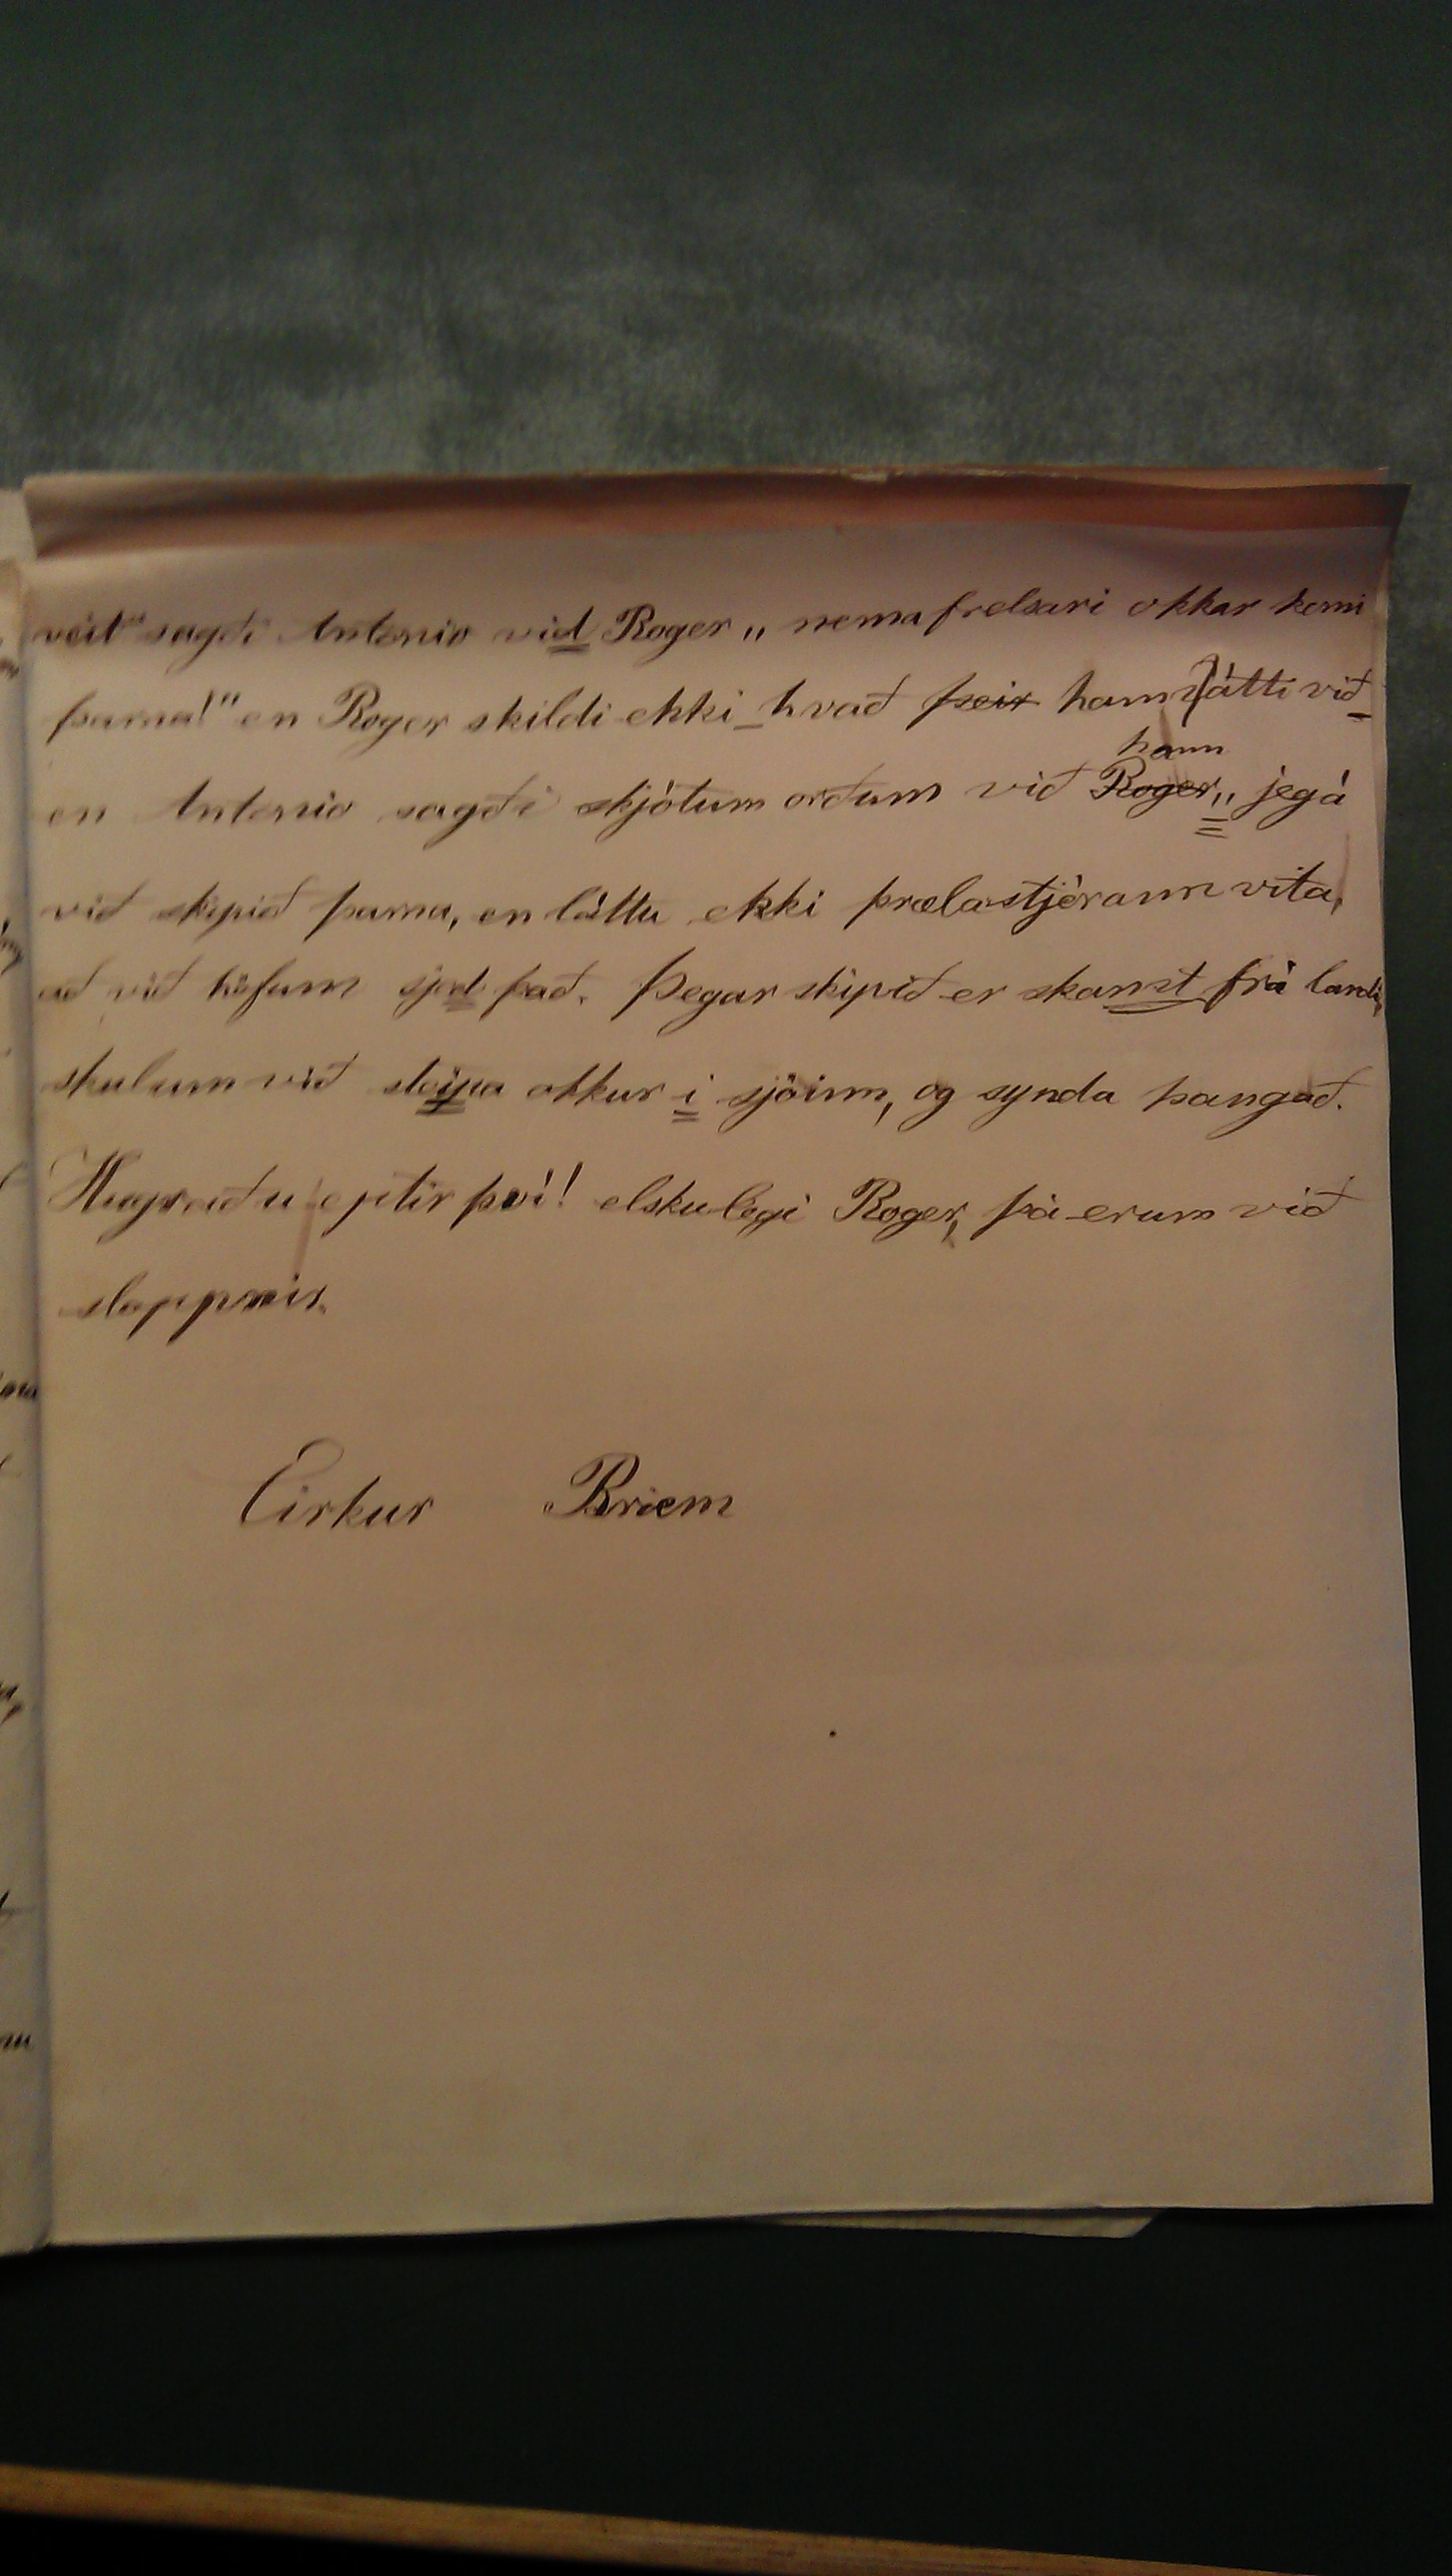 veit" sagði Antonio vid Roger „ nema frelsari okkar komi
þarna!" en Roger skildi ekki hvað þeir hann átti við
hann
en Antonio sagði skjótum orðum við Roger „ jeg á
við skipið þarna, en láttu ekki þrælastjórann vita,
að við höfum sjed það. Þegar skipið er skamst frá landi,
skulum við steipa okkur i sjóinn, og synda þangað.
Hugsaðu eptir því! elskulegi Roger, þá erum við
sloppnir.
Eirkur Briem